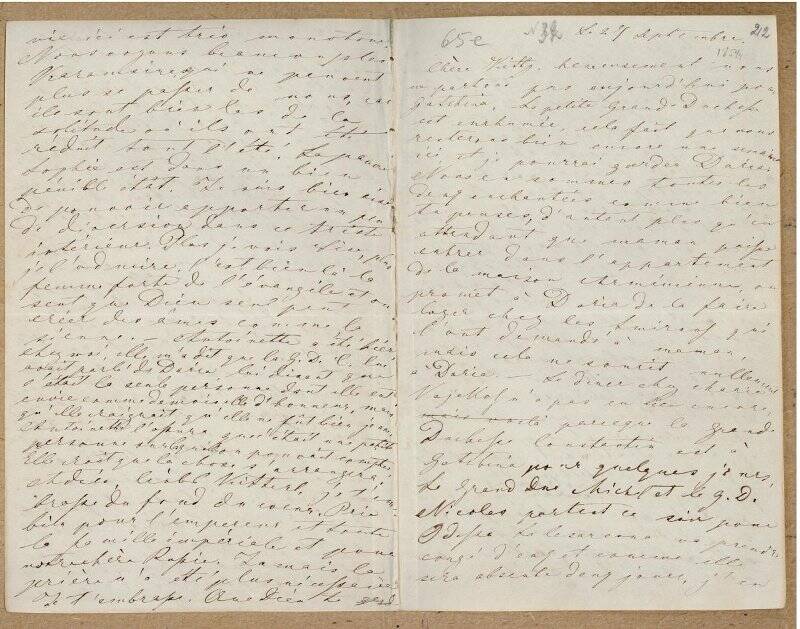 vie ici est très monotone.
Nous voyons beaucoup les
Karamsine qui ne peuvent
plus se passer de nous, car
ils sont bien las de la
solitude où ils ont été
réduit tout l'été. La pauvre
Sophie est dans un bien
pénible état. Je suis bien aise
de pouvoir apporter un peu
de diversion dans ce triste
intérieur. Plus je vois Lise, plus
je l'admire. C'est bien là la
femme forte de l'évangile et on
sent que Dieu seul peut
créer des âmes comme la
sienne. – Antoinette a été hier
chez moi, elle m'a dit que la G. D. C. lui
avait parlé de Daria lui disant que
c'était la seule personne dont elle eut
envie comme demoiselle d'honneur, mais
qu'elle craignait qu'elle ne fût bien jeune
Antoinette l'assura que c'était une petite
personne sur laquelle on pouvait compter.
Elle croit que la chose s'arrangera.
Adieu, liebe Kitterl, je t'em-
brasse du fond du cœur. Prie
bien pour l'empereur et toute
la famille impériale et pour
notre chère Russie. Jamais la
prière n'a été plus nécessaire
Je t'embrasse. Que Dieu te
65e
N 32
Le 27 Septembre
212
1854
Chère Kitty, heureusement nous
ne partons pas aujourd'hui pour
Gatchina. La petite Grand Duchesse
est enrhumée, cela fait que nous
resterons bien encore une semaine
ici, et je pourrai garder Daria.
Nous en sommes toutes les
deux enchantées comme bien
tu penses, d'autant plus qu'en
attendant que maman puisse
entrer dans l'appartement
de la maison Arménienne, on
promet à Daria de la faire
loger chez les Smirnof qui
l'ont demandé à maman,
mais cela ne sourit nullement
à Daria. – Le dîner chez
n'a pas eu lieu encore,
parceque la Grande
Duchesse Constantin est à
Gatchina pour quelques jours,
Le Grand Duc Michel et le G. D.
Nicolas partent ce soir pour
Odessa. La Cesarevna va prendre
congé d'eux et comme elle
sera absente deux jours, j'en